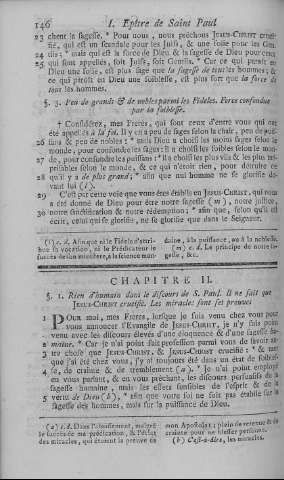 146 I. Epître de Saint Paul
23 chent la sagesse. * Pour nous, nous prêchons JESUS-CHRIST crucifié,
qui est un scandale pour les Juifs, & une folie pour les Gentils
24 mais
25 qui sont appellés, soit Juifs, soit Gentils. * Car ce qui paroît en
Dieu une folie, est plus sage que la sagesse de tous les hommes; &
ce qui paroît en Dieu une foiblesse, est plus fort que la force de
tous les hommes.
§. 3. Peu de grands & de nobles parmi les Fideles. Force confondue
par la foiblesse.
† Considérez, mes Freres, qui sont ceux d'entre vous qui ont
été appellés à la foi. Il y en a peu de sages selon la chair, peu de puissans
26 & peu de nobles: * mais Dieu a choisi les moins sages selon le
monde, pour confondre les sages; il a choisi les foibles selon le monde,
27 pour confondre les puissans: * Il a choisi les plus vils & les plus méprisables
selon le monde, & ce qui n'étoit rien, pour détruire
28 ce qu'il y a de plus grand; * afin que nul homme ne se glorifie devant
lui (l).
29 C'est par cette voie que vous êtes établis en JESUS-CHRIST, qui nous
a été donné de Dieu pour être notre sagesse (m), notre justice,
30 notre sanctification & notre rédemption; * afin que, selon qu'il est
écrit, celui qui se glorifie, ne se glorifie que dans le Seigneur.
(l) c. d. Afin que ni le Fidele d'entendre
sa vocation, ni le Prédicateur le
succès de son ministere, à la science mondaine,
à la puissance, ou à la noblesse.
(m) c. d. Le principe de notre sagesse,
&c.
CHAPITRE II.
§. 1. Rien d'humain dans le discours de S. Paul. Il ne sait que
JESUS-CHRIST crucifié. Les miracles sont ses preuves
1 POur moi, mes Freres, lorsque je suis venu chez vous pour
vous annoncer l'Evangile de JESUS-CHRIST, je n'y suis point
venu avec les discours élevés d'une éloquence & d'une sagesse humaine.
2 * Car je n'ai point fait profession parmi vous de savoir autre
3 chose que JESUS-CHRIST, & JESUS-CHRIST crucifié. * Et tant
que j'ai été chez vous, j'y ai toujours été dans un état de foiblesse,
4 de crainte & de tremblement (a). * Je n'ai point employé, en
vous parlant & en vous prêchant, les discours persuasifs de la
sagesse humaine, mais les effets sensibles de l'esprit & de la
5 vertu de Dieu (b), * afin que votre foi ne soit pas établie sur la
sagesse des hommes, mais sur la puissance de Dieu.
(a) c. d. Dans l'abaissement, malgré
le succès de ma prédication, & l'éclat
des miracles, qui étoient la preuve de
mon Apostolat; plein de retenue & de
crainte pour ne blesser personne.
(b) C'est-à-dire, les miracles.